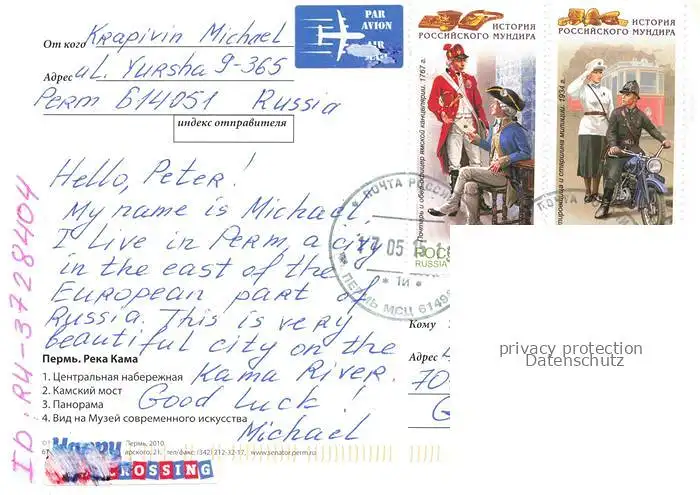 От кого Krapivin Michael
Адрес ul. Yursha 9-365
Perm 614051 Russia
индекс отправителя
PAR AVION
AIR
ИСТОРИЯ
РОССИЙСКОГО МУНДИРА
1767 г.
ИСТОРИЯ
РОССИЙСКОГО МУНДИРА
1934 г.
Hello, Peter!
My name is Michael,
I live in Perm, a city
in the east of the
European part of
Russia. This is very
beautiful city on the
Kama River.
Good Luck!
Michael
ID: RU-3728404
ПОЧТА РОССИ
17 05
1и
ПЕРМЬ МСЦ
RUSSIA
Кому
Адрес
70
privacy protection
Datenschutz
Пермь. Река Кама
1. Центральная набережная
2. Камский мост
3. Панорама
4. Вид на Музей современного искусства
Пермь, 2010
арского, 21. тел/факс: (342) 212-32-17, www.senator.perm.ru
Happy
CROSSING